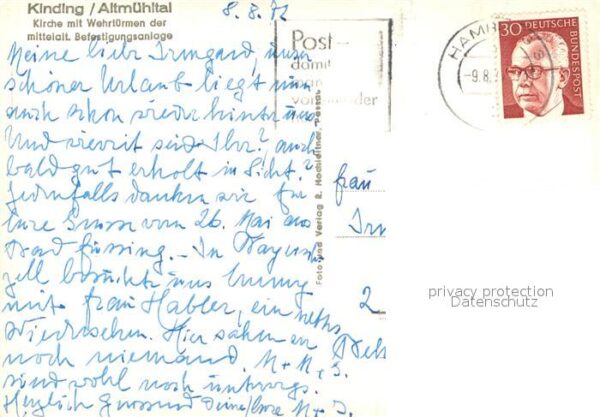 Kinding / Altmühltal
Kirche mit Wehrtürmen der
mittelalt. Befestigungsanlage
8.8.72
Meine liebe Irmgard, unser
schöner Urlaub liegt nun
auch schon wieder hinter uns
Und wieweit seid Ihr? auch
bald gut erholt in Sicht?
Jedenfalls danken wir für
Eure Grüsse vom 26. Mai aus
Bad Füssing. – In
zell besuchte uns
mit Frau Habler, ein nettes
Wiedersehen. Hier sahen wir
noch niemand. M + M, S.
sind wohl noch unterwegs.
Herzlich grüssend Deine/Eure M + S.
Post –
damit
man
voneinander
HAMB
-9.8.7
30 DEUTSCHE
BUNDESPOST
Foto und Verlag R. Hochleitner, Passau
Frau
Irm
2
privacy protection
Datenschutz